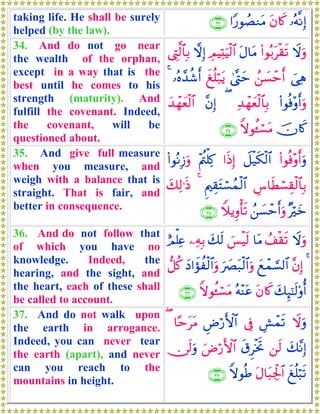 taking life. He shall be surely
helped (by the law).
إِنَّهُۥ كَانَ مَنصُورًا ﴿٣٣﴾
34. And do not go near
the wealth of the orphan,
except in a way that is the
best until he comes to his
strength (maturity). And
fulfill the covenant. Indeed,
the covenant, will be
questioned about.
وَلَا تَقْرَبُوا۟ مَالَ ٱلْيَتِيمِ إِلَّا بِٱلَّتِى
هِىَ أَحْسَنُ حَتَّىٰ يَبْلُغَ أَشُدَّهُۥ ۚ
وَأَوْفُوا۟ بِٱلْعَهْدِ ۖ إِنَّ ٱلْعَهْدَ
كَانَ مَسْـُٔولًا ﴿٣٤﴾
35. And give full measure
when you measure, and
weigh with a balance that is
straight. That is fair, and
better in consequence.
وَأَوْفُوا۟ ٱلْكَيْلَ إِذَا كِلْتُمْ وَزِنُوا۟
بِٱلْقِسْطَاسِ ٱلْمُسْتَقِيمِ ۚ ذَٰلِكَ
خَيْرٌ وَأَحْسَنُ تَأْوِيلًا ﴿٣٥﴾
36. And do not follow that
of which you have no
knowledge. Indeed, the
hearing, and the sight, and
the heart, each of these shall
be called to account.
وَلَا تَقْفُ مَا لَيْسَ لَكَ بِهِۦ عِلْمٌ
ۚ إِنَّ ٱلسَّمْعَ وَٱلْبَصَرَ وَٱلْفُؤَادَ كُلُّ
أُو۟لَـٰٓئِكَ كَانَ عَنْهُ مَسْـُٔولًا ﴿٣٦﴾
37. And do not walk upon
the earth in arrogance.
Indeed, you can never tear
the earth (apart), and never
can you reach to the
mountains in height.
وَلَا تَمْشِ فِى ٱلْأَرْضِ مَرَحًا ۖ
إِنَّكَ لَن تَخْرِقَ ٱلْأَرْضَ وَلَن
تَبْلُغَ ٱلْجِبَالَ طُولًا ﴿٣٧﴾